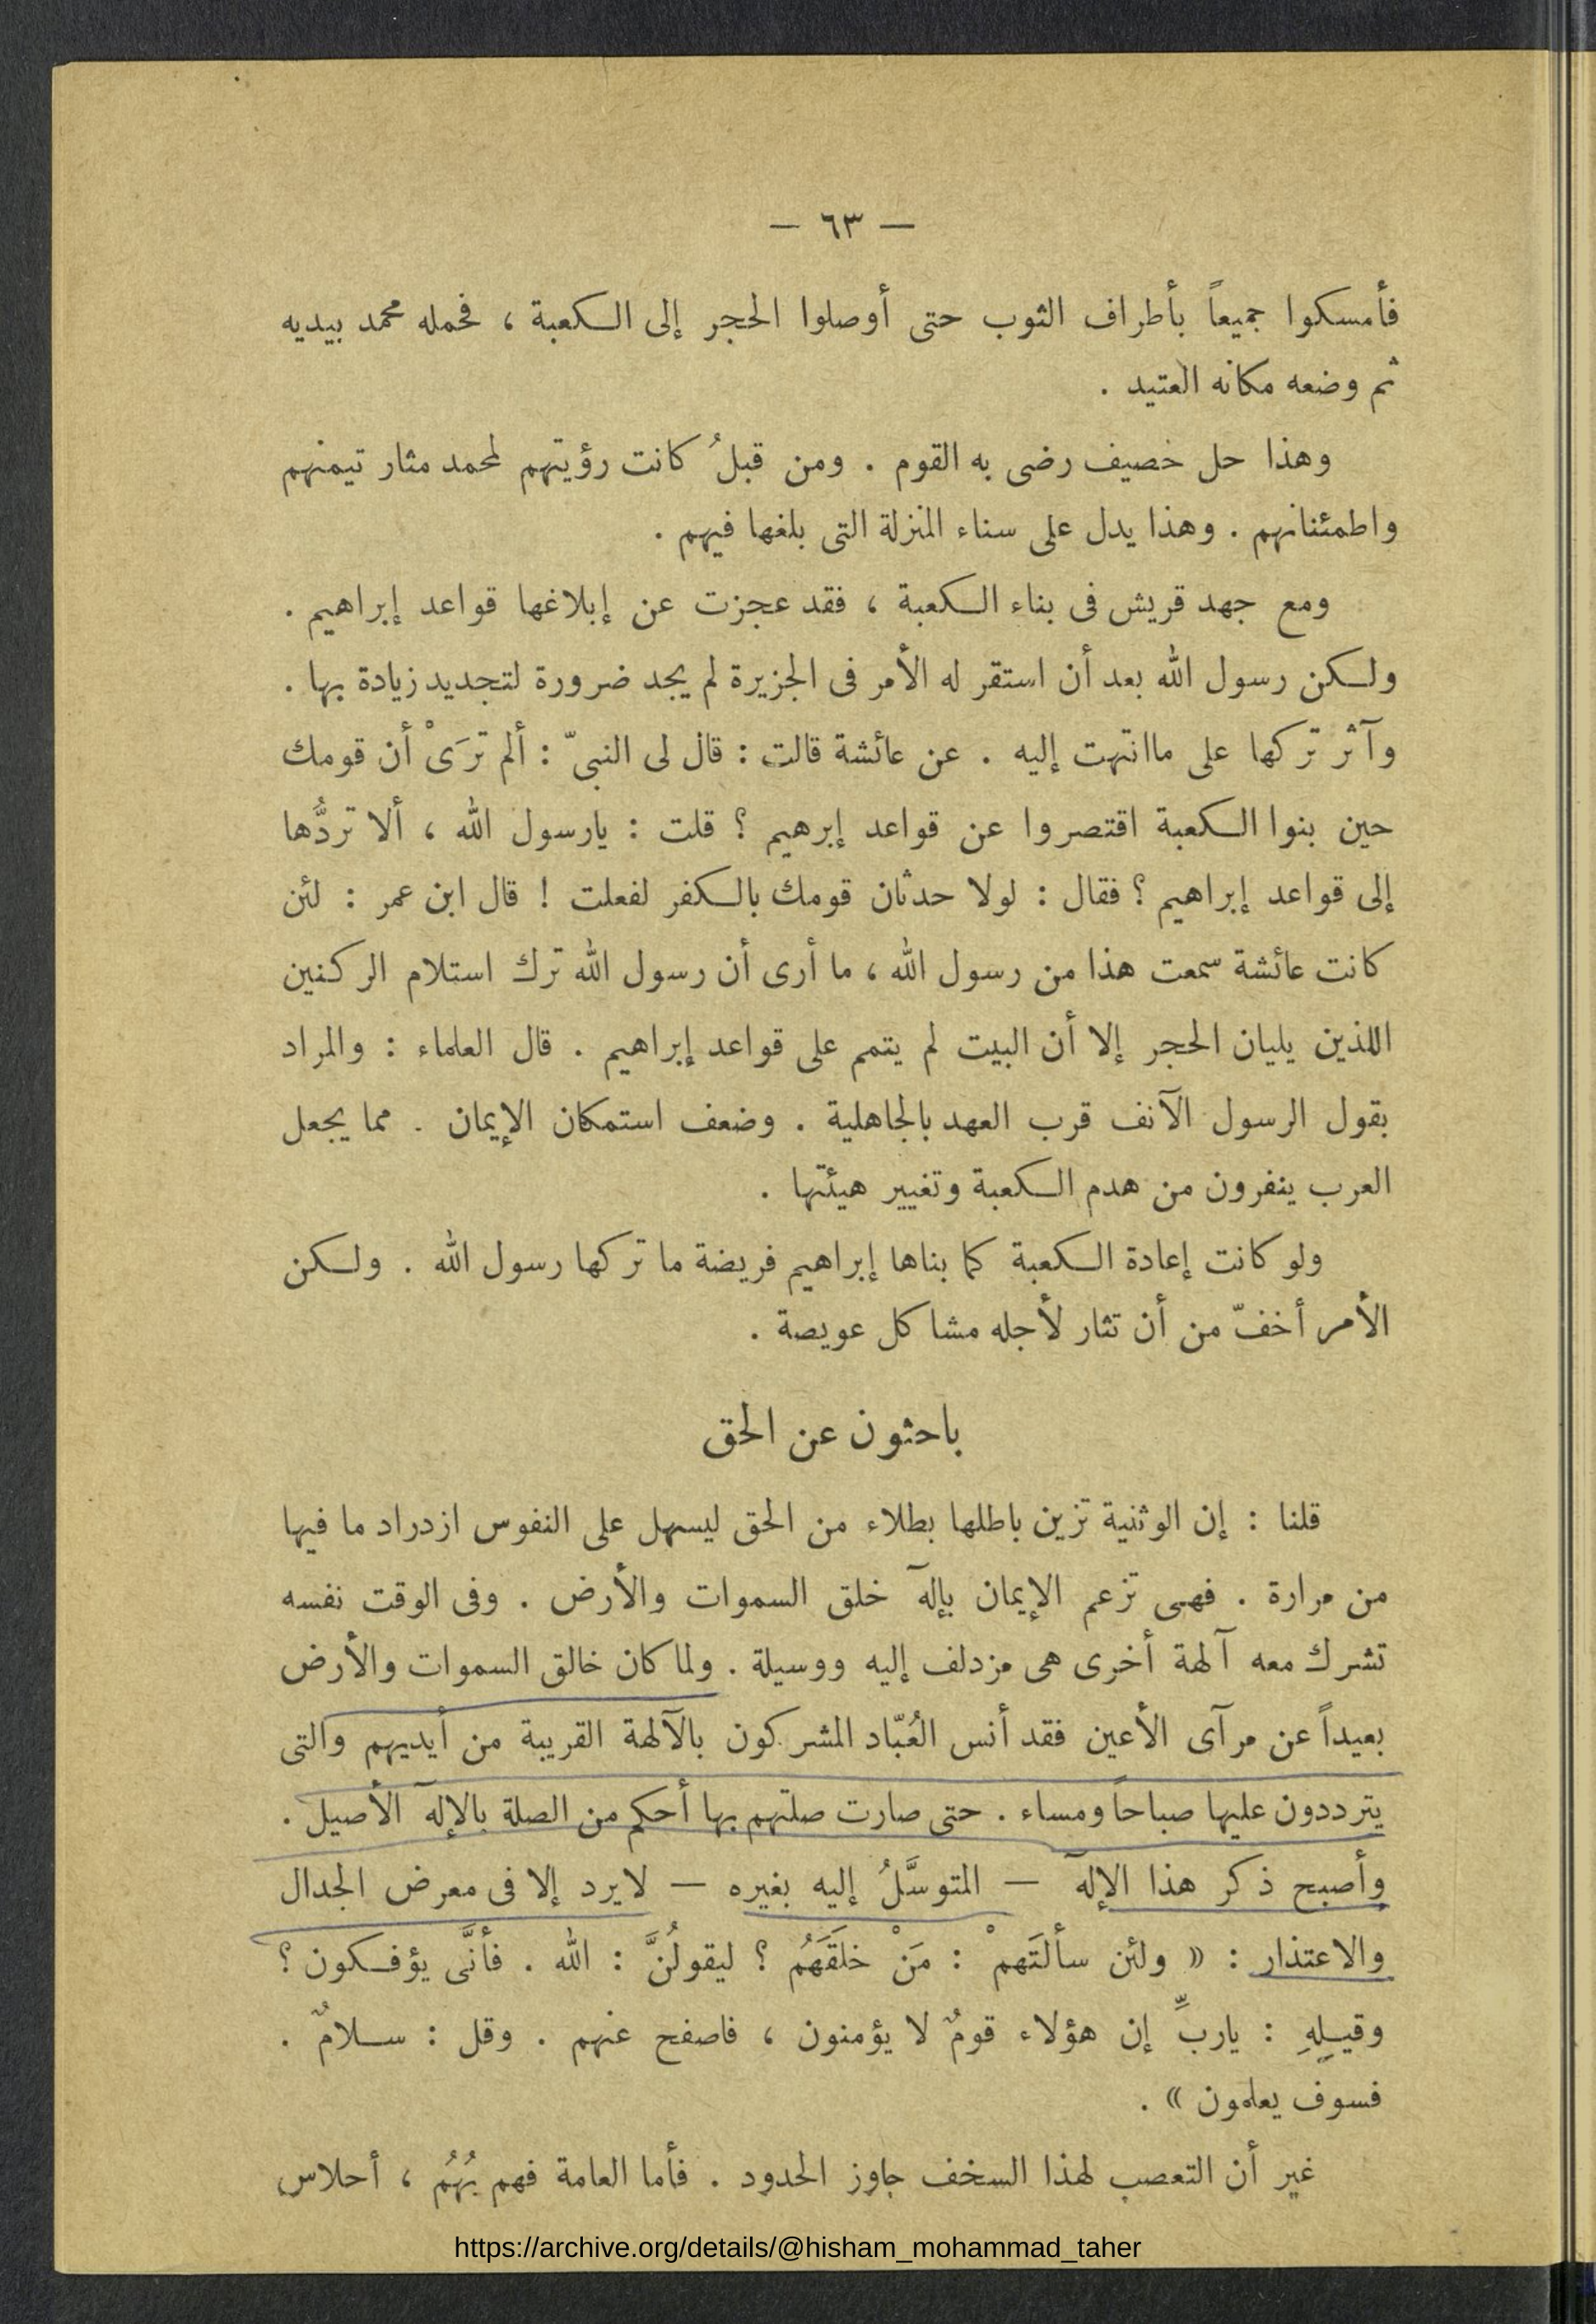 — ٦٣ —
فأمسكوا جميعاً بأطراف الثوب حتى أوصلوا الحجر إلى الكعبة ، فحمله محمد بيديه
ثم وضعه مكانه العتيد .
وهذا حل خصيف رضى به القوم . ومن قبلُ كانت رؤيتهم لمحمد مثار تيمنهم
واطمئنانهم . وهذا يدل على سناء المنزلة التى بلغها فيهم .
ومع جهد قريش فى بناء الكعبة ، فقد عجزت عن إبلاغها قواعد إبراهيم .
ولكن رسول الله بعد أن استقر له الأمر فى الجزيرة لم يجد ضرورة لتجديد زيادة بها .
وآثر تركها على ماانتهت إليه . عن عائشة قالت : قال لى النبىّ : ألم ترَىْ أن قومك
حين بنوا الكعبة اقتصروا عن قواعد إبرهيم ؟ قلت : يارسول الله ، ألا تردُّها
إلى قواعد إبراهيم ؟ فقال : لولا حدثان قومك بالكفر لفعلت ! قال ابن عمر : لئن
كانت عائشة سمعت هذا من رسول الله ، ما أرى أن رسول الله ترك استلام الركنين
اللذين يليان الحجر إلا أن البيت لم يتمم على قواعد إبراهيم . قال العلماء : والمراد
بقول الرسول الآنف قرب العهد بالجاهلية . وضعف استمكان الإيمان . مما يجعل
العرب ينفرون من هدم الكعبة وتغيير هيئتها .
ولو كانت إعادة الكعبة كما بناها إبراهيم فريضة ما تركها رسول الله . ولكن
الأمر أخفّ من أن تثار لأجله مشاكل عويصة .
باحثون عن الحق
قلنا : إن الوثنية تزين باطلها بطلاء من الحق ليسهل على النفوس ازدراد ما فيها
من مرارة . فهى تزعم الإيمان بإلآه خلق السموات والأرض . وفى الوقت نفسه
تشرك معه آلهة أخرى هى مزدلف إليه ووسيلة . ولما كان خالق السموات والأرض
بعيداً عن مرآى الأعين فقد أنس العُبّاد المشركون بالآلهة القريبة من أيديهم والتى
يترددون عليها صباحاً ومساء . حتى صارت صلتهم بها أحكم من الصلة بالإلآه الأصيل .
وأصبح ذكر هذا الإلآه — المتوسَّلُ إليه بغيره — لايرد إلا فى معرض الجدال
والاعتذار : « ولئن سألتَهمْ : مَنْ خلَقَهَمُ ؟ ليقولُنَّ : الله . فأنَّى يؤفكون ؟
وقيلِهِ : ياربِّ إن هؤلاء قومٌ لا يؤمنون ، فاصفح عنهم . وقل : سلامٌ .
فسوف يعلمون » .
غير أن التعصب لهذا السخف جاوز الحدود . فأما العامة فهم بُهُم ، أحلاس
https://archive.org/details/@hisham_mohammad_taher